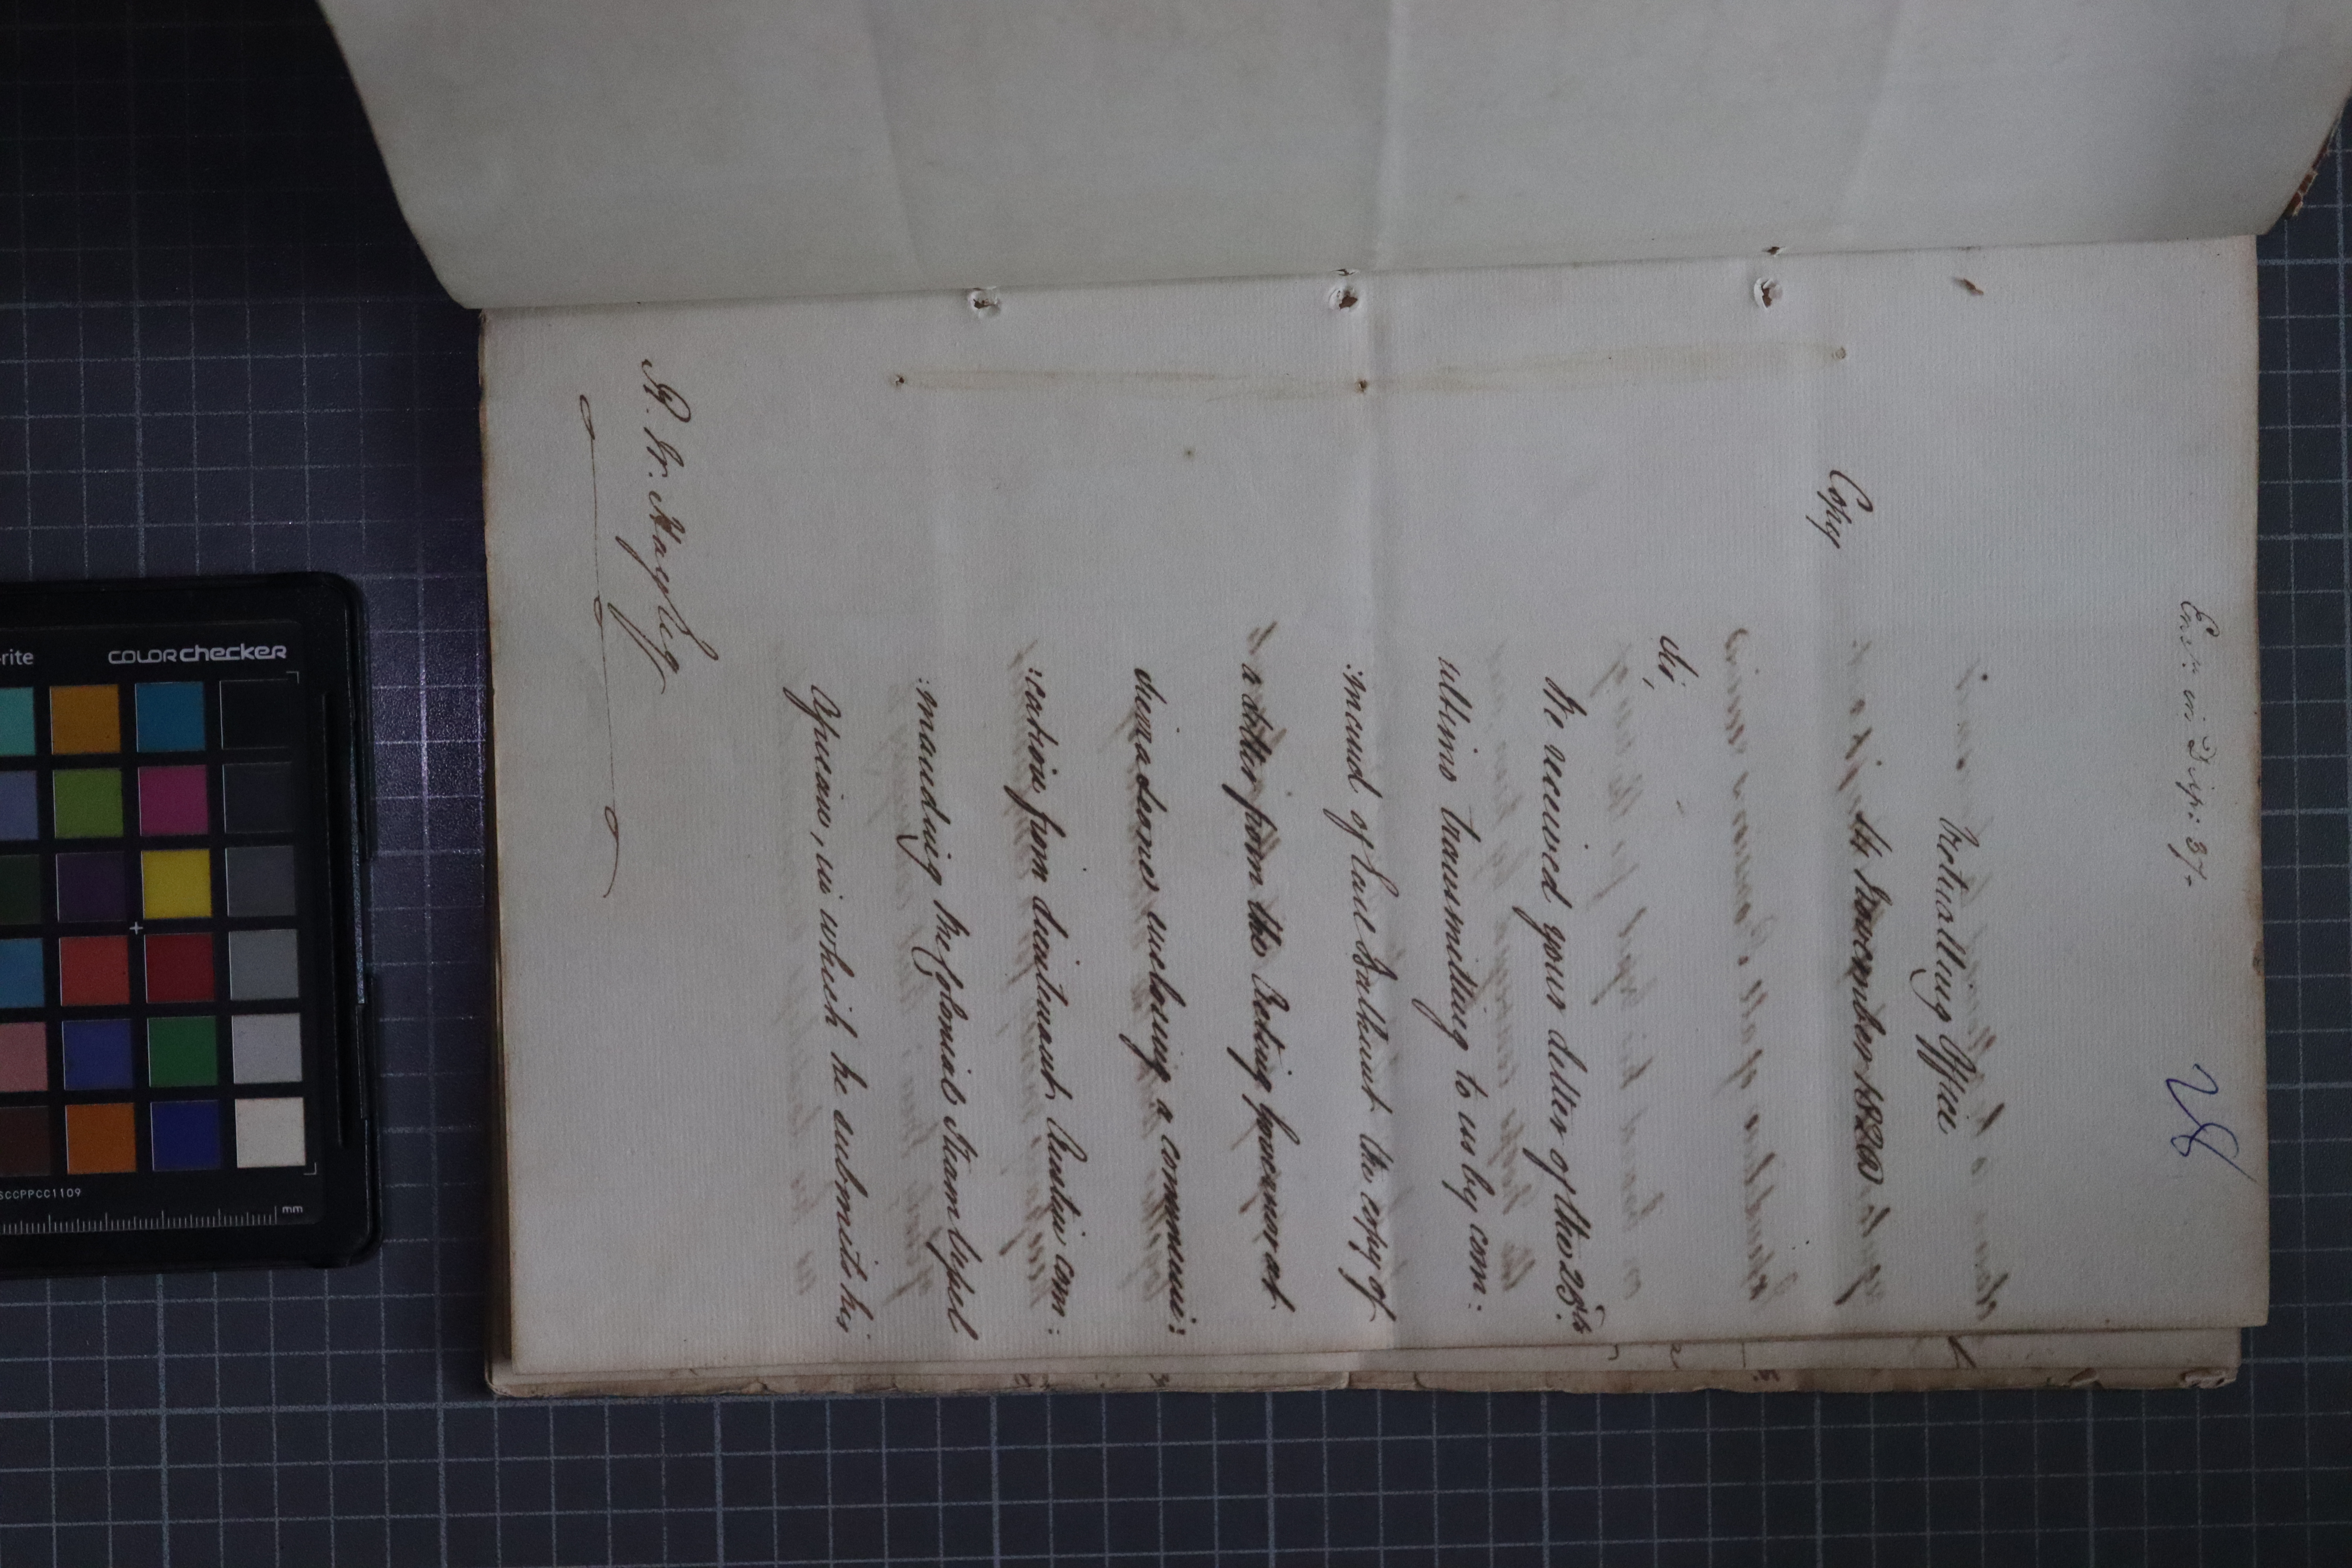 Enc: in Disp: 37.
28
Victualling Office
14 November 1820
Copy
Sir,
We received your Letter of the 28th
ultimo transmitting to us by com:
:mand of Earl Bathurst the copy of
a Letter from the Acting Governor at
Sierra Leone enclosing a communi:
:cation from Lieutenant Austin com:
:manding the Colonial Steam Vessel
Opinion, in which he submits his
R. W. Hay Esq
COLORchecker
mm